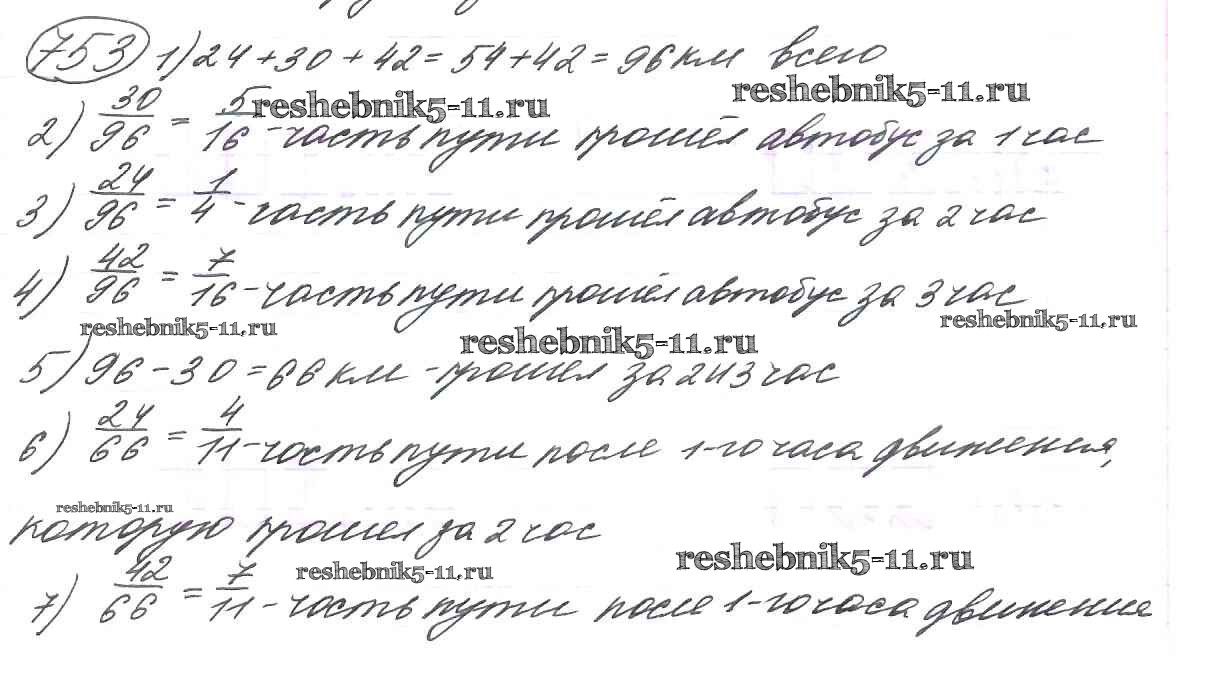 753 1) 24 + 30 + 42 = 54 + 42 = 96 км всего
reshebnik5-11.ru reshebnik5-11.ru
2) 30/96 = 5/16 - часть пути прошёл автобус за 1 час
3) 24/96 = 1/4 - часть пути прошёл автобус за 2 час
4) 42/96 = 7/16 - часть пути прошёл автобус за 3 час
reshebnik5-11.ru reshebnik5-11.ru reshebnik5-11.ru
5) 96 - 30 = 66 км - прошел за 2 и 3 час
6) 24/66 = 4/11 - часть пути после 1-го часа движения,
reshebnik5-11.ru
которую прошел за 2 час
reshebnik5-11.ru reshebnik5-11.ru
7) 42/66 = 7/11 - часть пути после 1-го часа движения